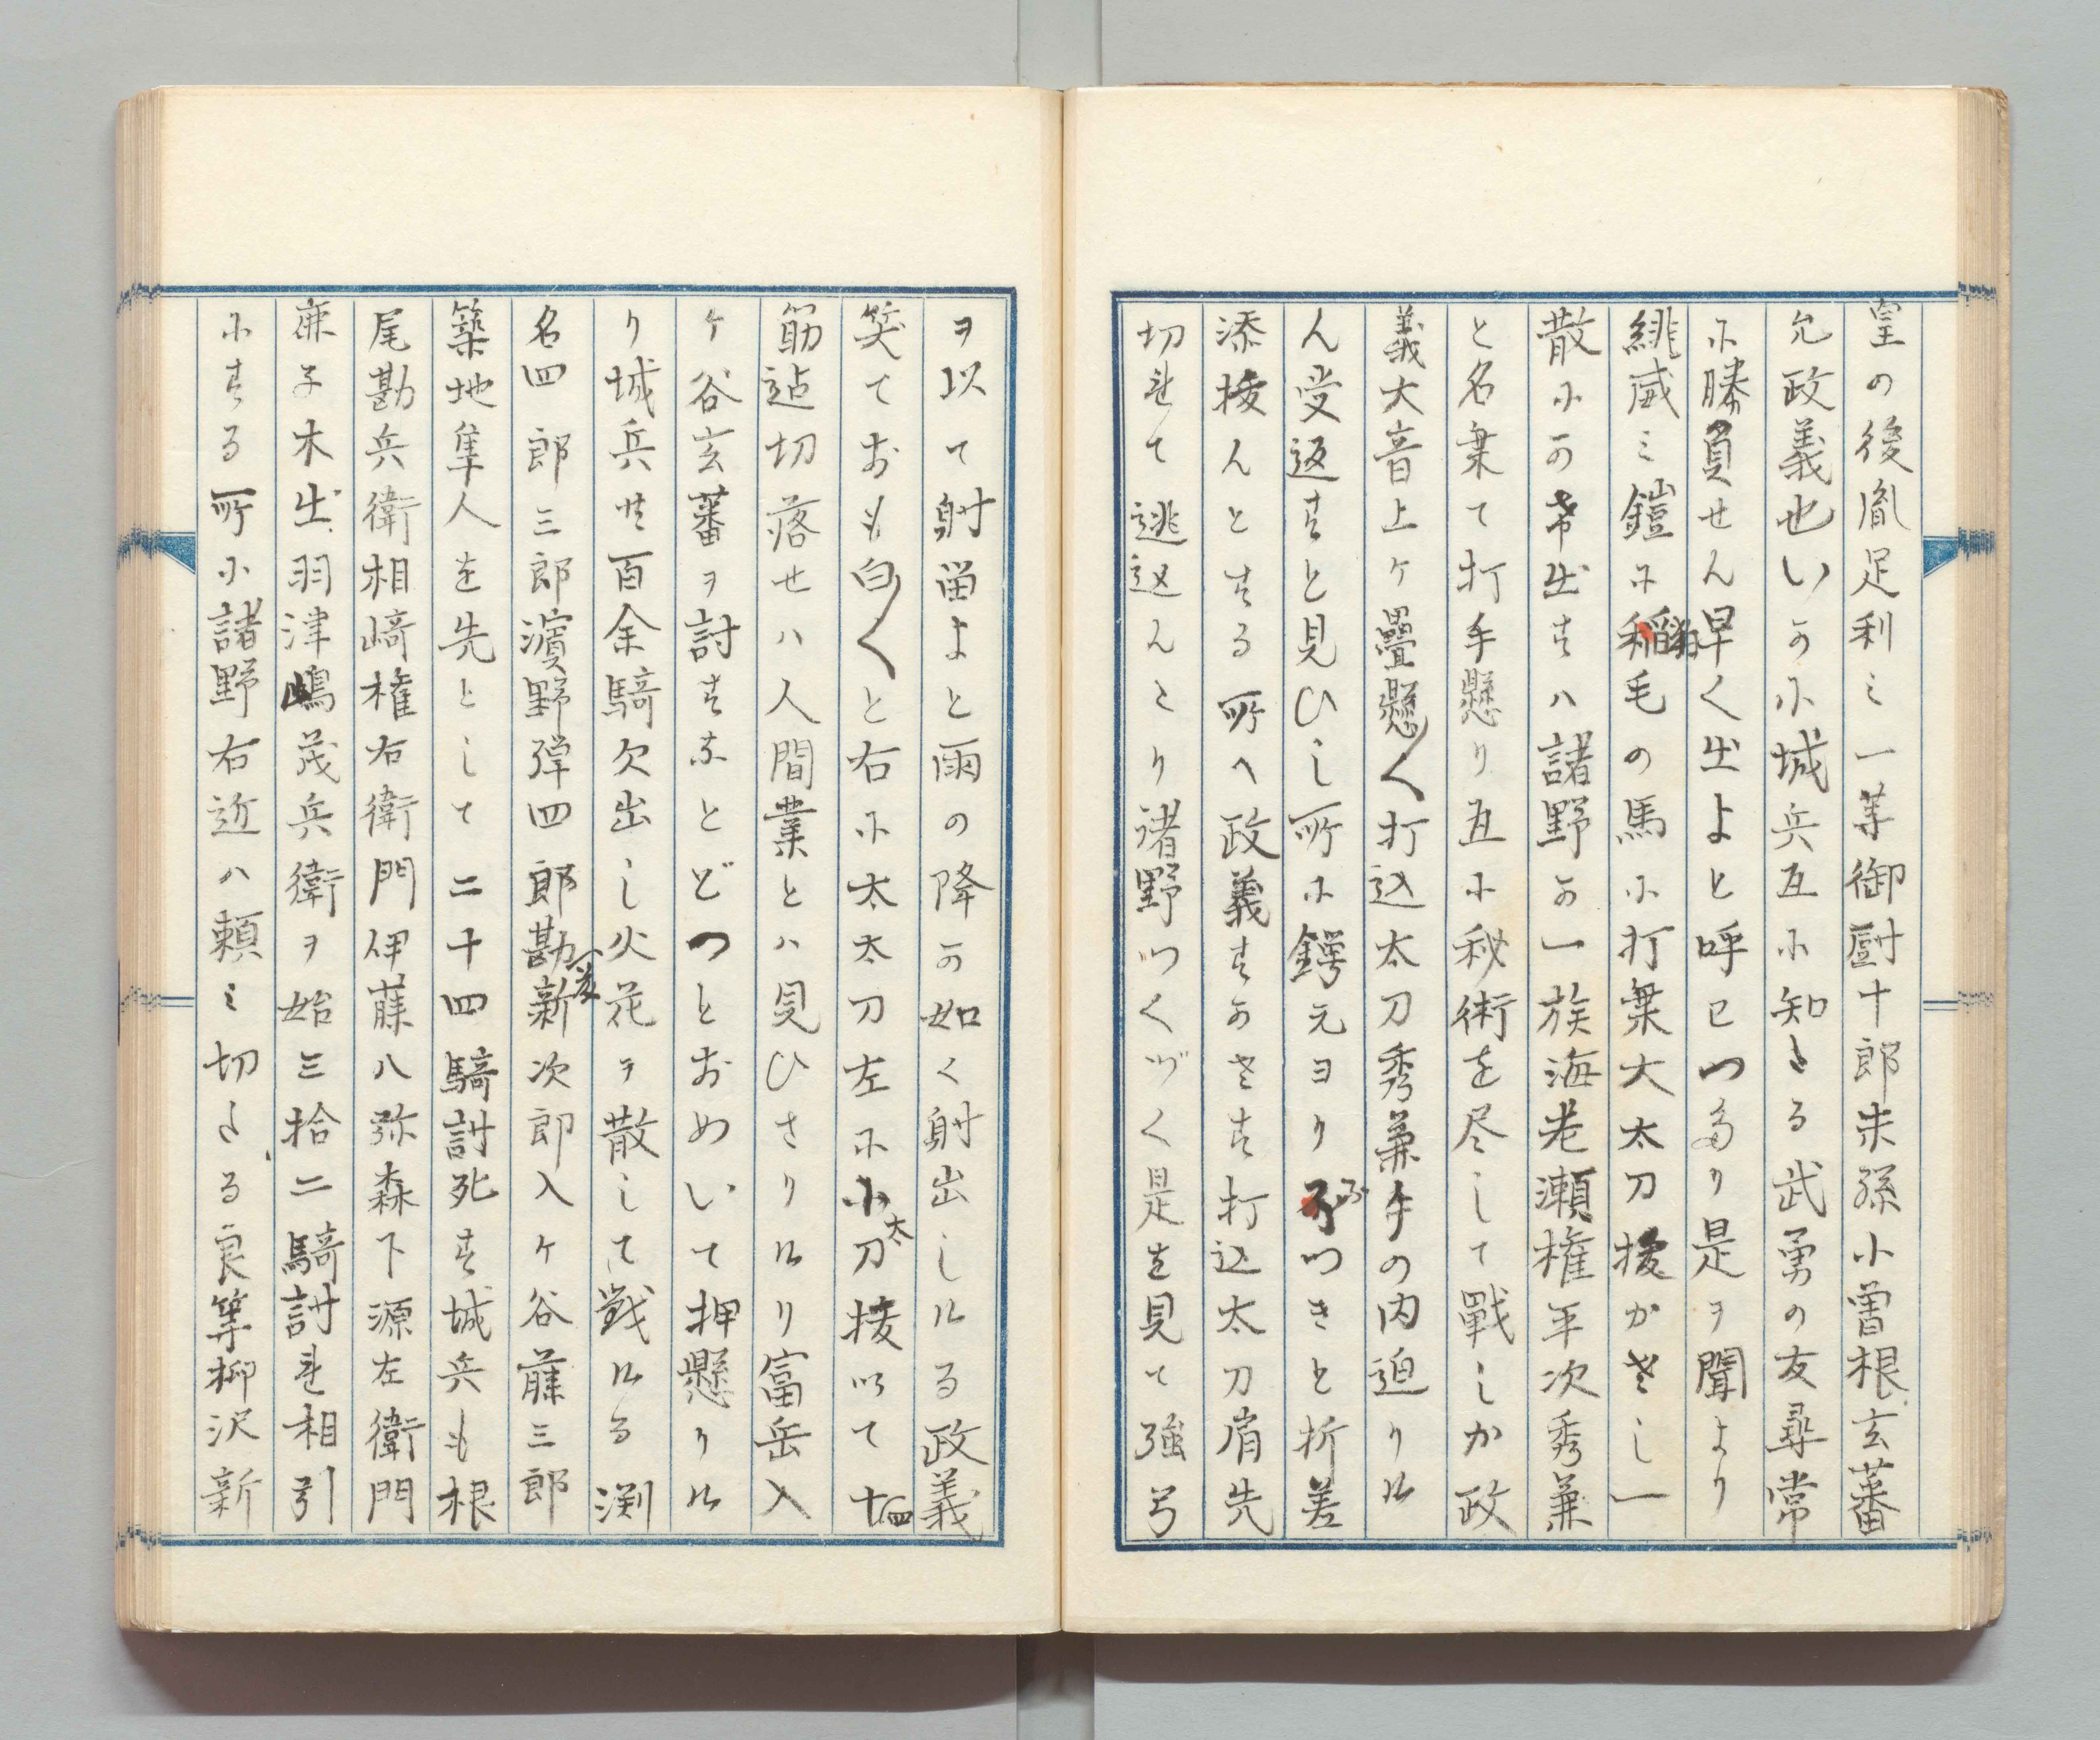 皇の後胤足利ミ一等御厨十郎末孫小曽根玄蕃
允政義也いかに城兵互に知たる武勇の友尋常
に勝負せん早く出よと呼ワつたり是ヲ聞より
緋威ミ鎧に稲毛の馬に打乗大太刀抜かさし一
散にかけ出すハ諸野か一族海老瀬権平次秀兼
と名乗て打手懸り互に秘術を尽して戦しか政
義大音上ケ畳懸〱打込太刀秀兼手の内迫りけ
ん受返すと見ひし所に鍔元ヨリぶつきと折差
添抜んとする所へ政義すかさす打込太刀肩先
切れて逃込んとり諸野つくづく是を見て強弓
ヲ以て射留よと雨の降か如く射出しける政義
笑ておも白〱と右に太太刀左に小太刀抜以て十四
筋迠切落せハ人間業とハ見ひさりけり富岳入
ケ谷玄蕃ヲ討すなとどつとおめいて押懸りけ
り城兵共百余騎欠出し火花ヲ散して戦ける渕
名四郎三郎濱野弾四郎郎勘新次郎入ケ谷藤三郎
築地隼人を先として二十四騎討死す城兵も根
尾勘兵衛相﨑権右衛門伊藤八弥森下源左衛門
鹿子木出羽津嶋茂兵衛ヲ始三拾二騎討れ相引
にする所に諸野右近ハ頼ミ切たる良等柳沢新